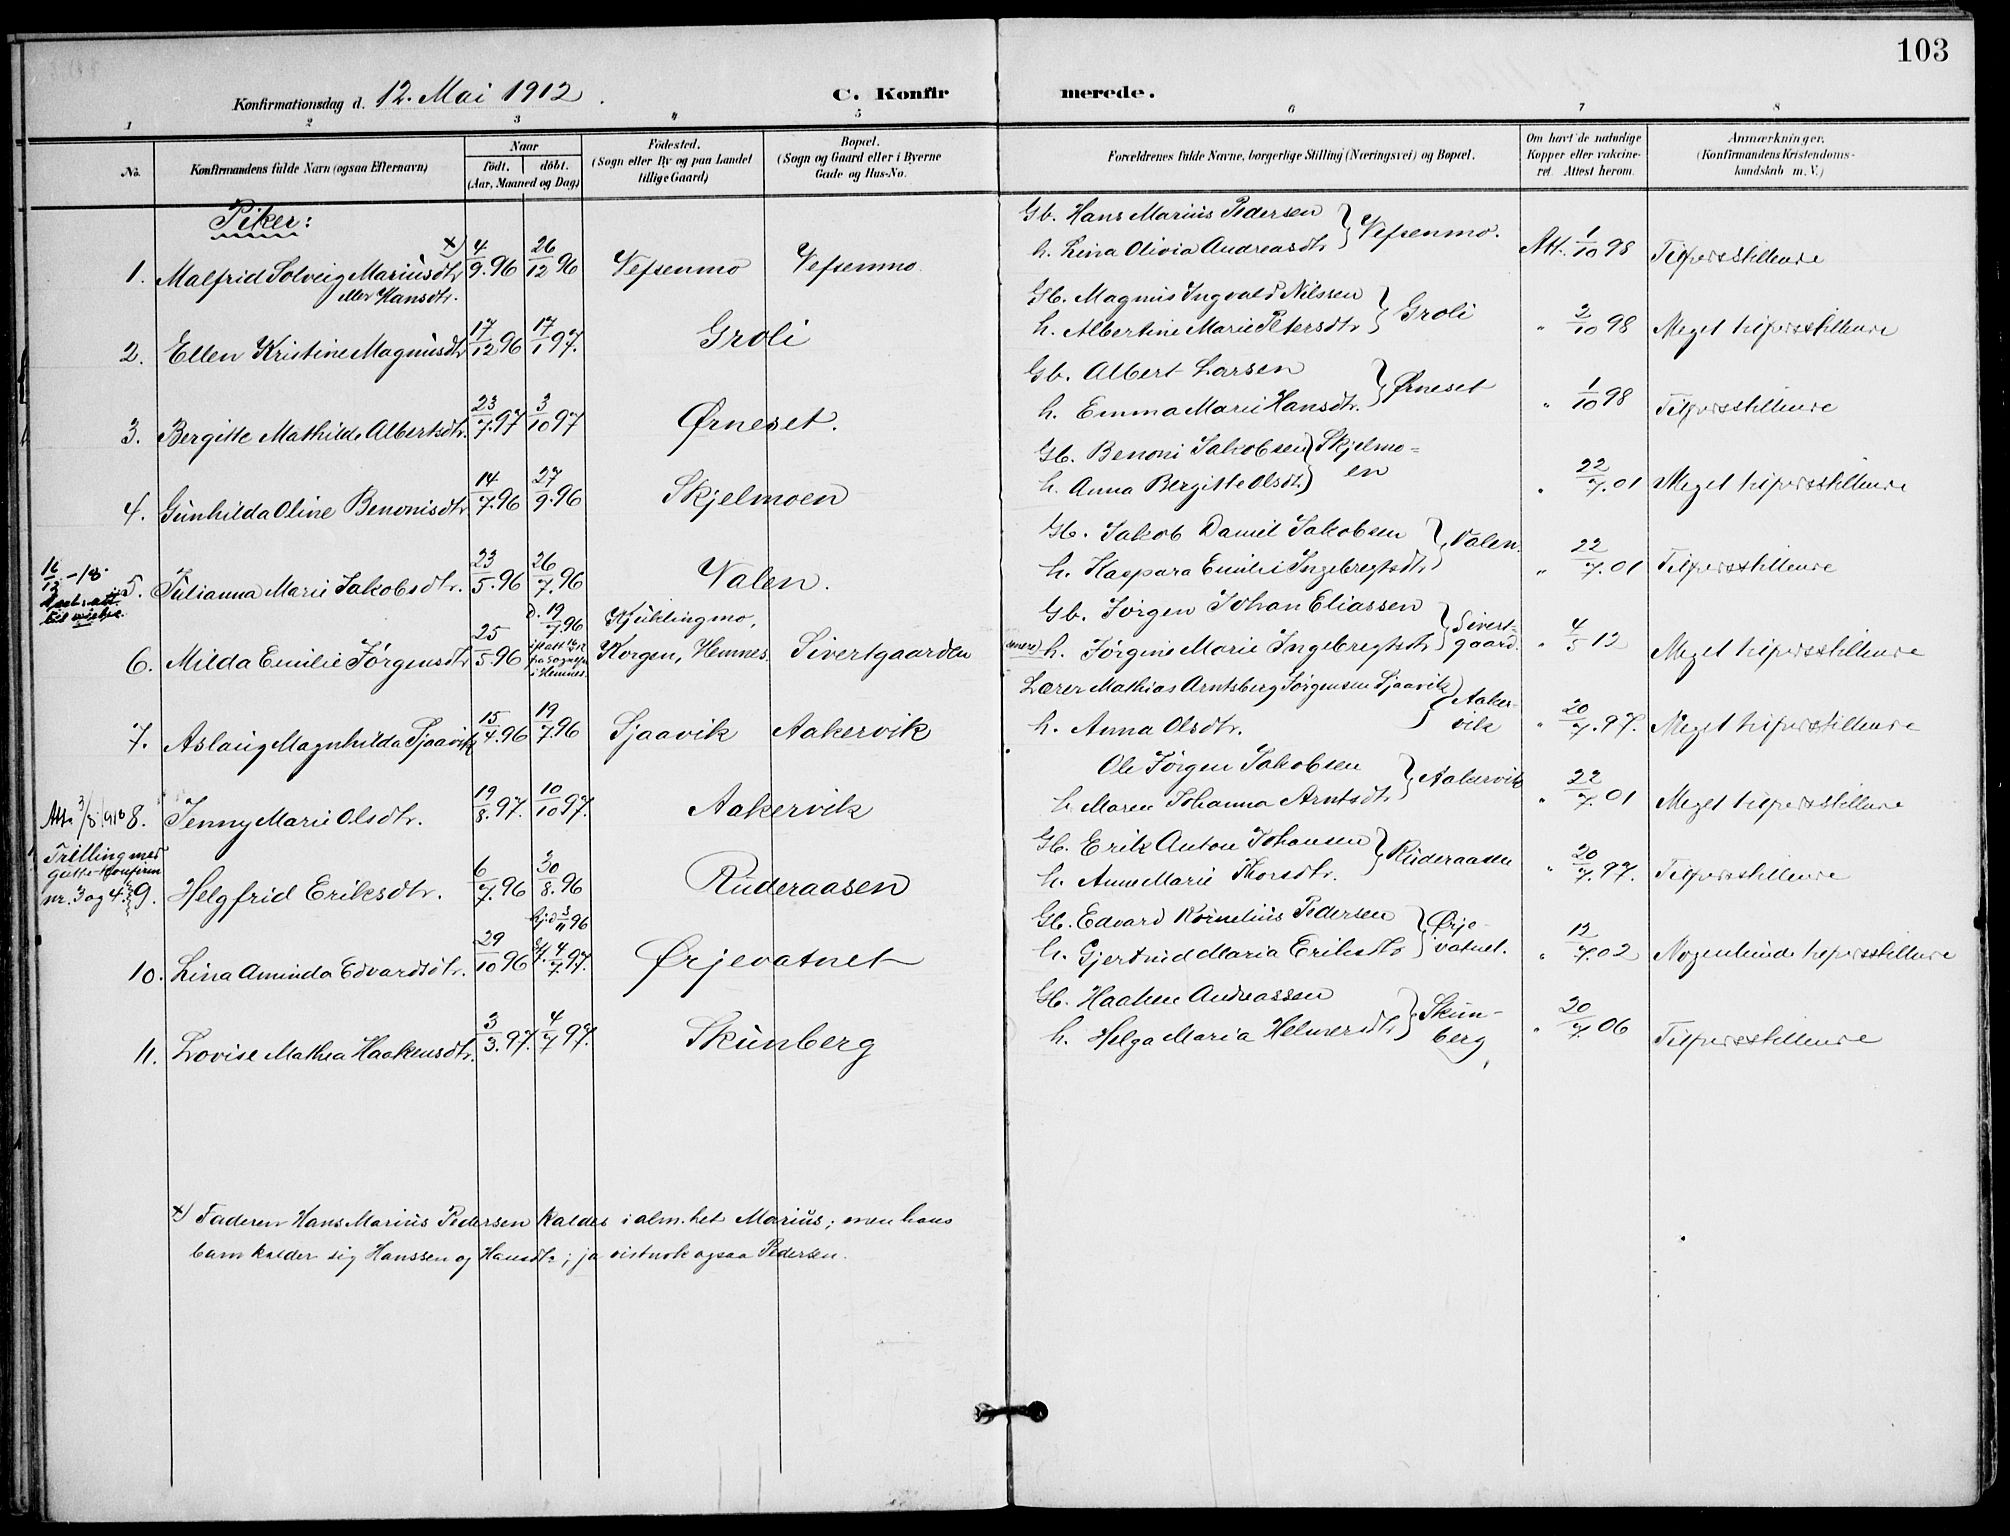 103
Konfirmationsdag d. 12. Mai 1912.
C. Konfirmerede.
1 2 3 4 5 6 7 8
No.
Konfirmandens fulde Navn (ogsaa Efternavn)
Naar
født. døbt.
(Aar, Maaned og Dag)
Fødested.
(Sogn eller By og paa Landet
tillige Gaard)
Bopæl.
(Sogn og Gaard eller i Byerne
Gade og Hus-No.
Forældrenes fulde Navne, borgerlige Stilling (Næringsvei) og Bopæl.
Om havt de naturlige
Kopper eller vakcine-
ret. Attest herom.
Anmærkninger.
(Konfirmandens Kristendoms-
kundskab m. V.)
Piker:
1. Malfrid Solveig Mariusdtr x) 4/9.96 26/12 96 Vefsenmo Vefsenmo
eller Hansdtr.
Gb. Hans Marius Pedersen
h. Lina Olivia Andreasdtr } Vefsenmo. Att. 1/10 98 Tilfredsstillende
2. Ellen Kristine Magnusdtr 17/12 96 17/1 97. Groli
Gb. Magnus Ingvald Nilssen
h. Albertine Marie Petersdtr } Groli " 2/10 98 Meget tilfredsstillende
3. Bergitte Mathilde Albertsdtr. 23/7.97 3/10 97 Ørneset.
Gb. Albert Larsen
h. Emma Marie Hansdtr. } Ørneset " 1/10 98 Tilfredsstillende
4. Gunhilda Oline Benonisdtr 14/7.96 27/9.96 Skjelmoen
Gb. Benoni Jakobsen } Skjelmo=
h. Anna Bergitte Olsdtr. } en " 22/7.01 Meget tilfredsstillende
16/12 - 18.
5. Julianna Marie Jakobsdtr. 23/5.96 26/7.96 Valen.
Gb. Jakob Daniel Jakobsen } Valen.
h. Kaspara Emilie Ingebregtsdtr " 22/7.01 Tilfredsstillende
6. Milda Emilie Jørgensdtr 25/5.96 D. 19/7 96 Kjuklingmo,
Korgen, Hemnes. Sivertgaarden
i Hemnes.
Gb. Jørgen Johan Eliassen } Sivert-
h. Jørgine Marie Ingebregtsdtr } gaard. " 4/5 12 Meget tilfredsstillende
7. Aslaug Magnhilda Sjaavik 15/4.96 19/7.96 Sjaavik Aakervik
Lærer Mathias Arntsberg Jørgensen Sjaavik } Aaker-
h. Anna Olsdtr. vik " 20/7.97. Meget tilfredsstillende
Att. 3/8 1918 8. Jenny Marie Olsdtr. 19/8.97. 10/10 97. Aakervik
Ole Jørgen Jakobsen
h Maren Johanna Arntsdtr. } Aakervik " 22/7.01 Meget tilfredsstillende
Trilling med
gutte-konfirm
nr. 3 og 4. 9. Helgfrid Eriksdtr. 6/7.96 30/8.96 Ruderaasen
Gb. Erik Anton Johansen
h. Anne Marie Thorsdtr. } Ruderaasen " 20/7.97. Tilfredsstillende
10. Lina Aminda Edvardsdtr. 29/10 96 hjd 3/11 96 Ørjevatnet
4/7 97.
Gb. Edvard Kornelius Pedersen } Ørje-
h. Gjertrud Maria Eriksdtr } vatnet. " 12/7.02 Nogenlunde tilfredsstillende
11. Lovise Mathea Haakensdtr. 3/3.97. 4/7 97. Skunberg
Gb. Haaken Andreassen } Skun-
h. Helga Maria Helmersdtr } berg " 20/7.06 Tilfredsstillende
x) Faderen Hans Marius Pedersen kaldes i alm.het Marius; men hans
barn kalder sig Hanssen og Hansdtr; ja vistnok ogsaa Pedersen.